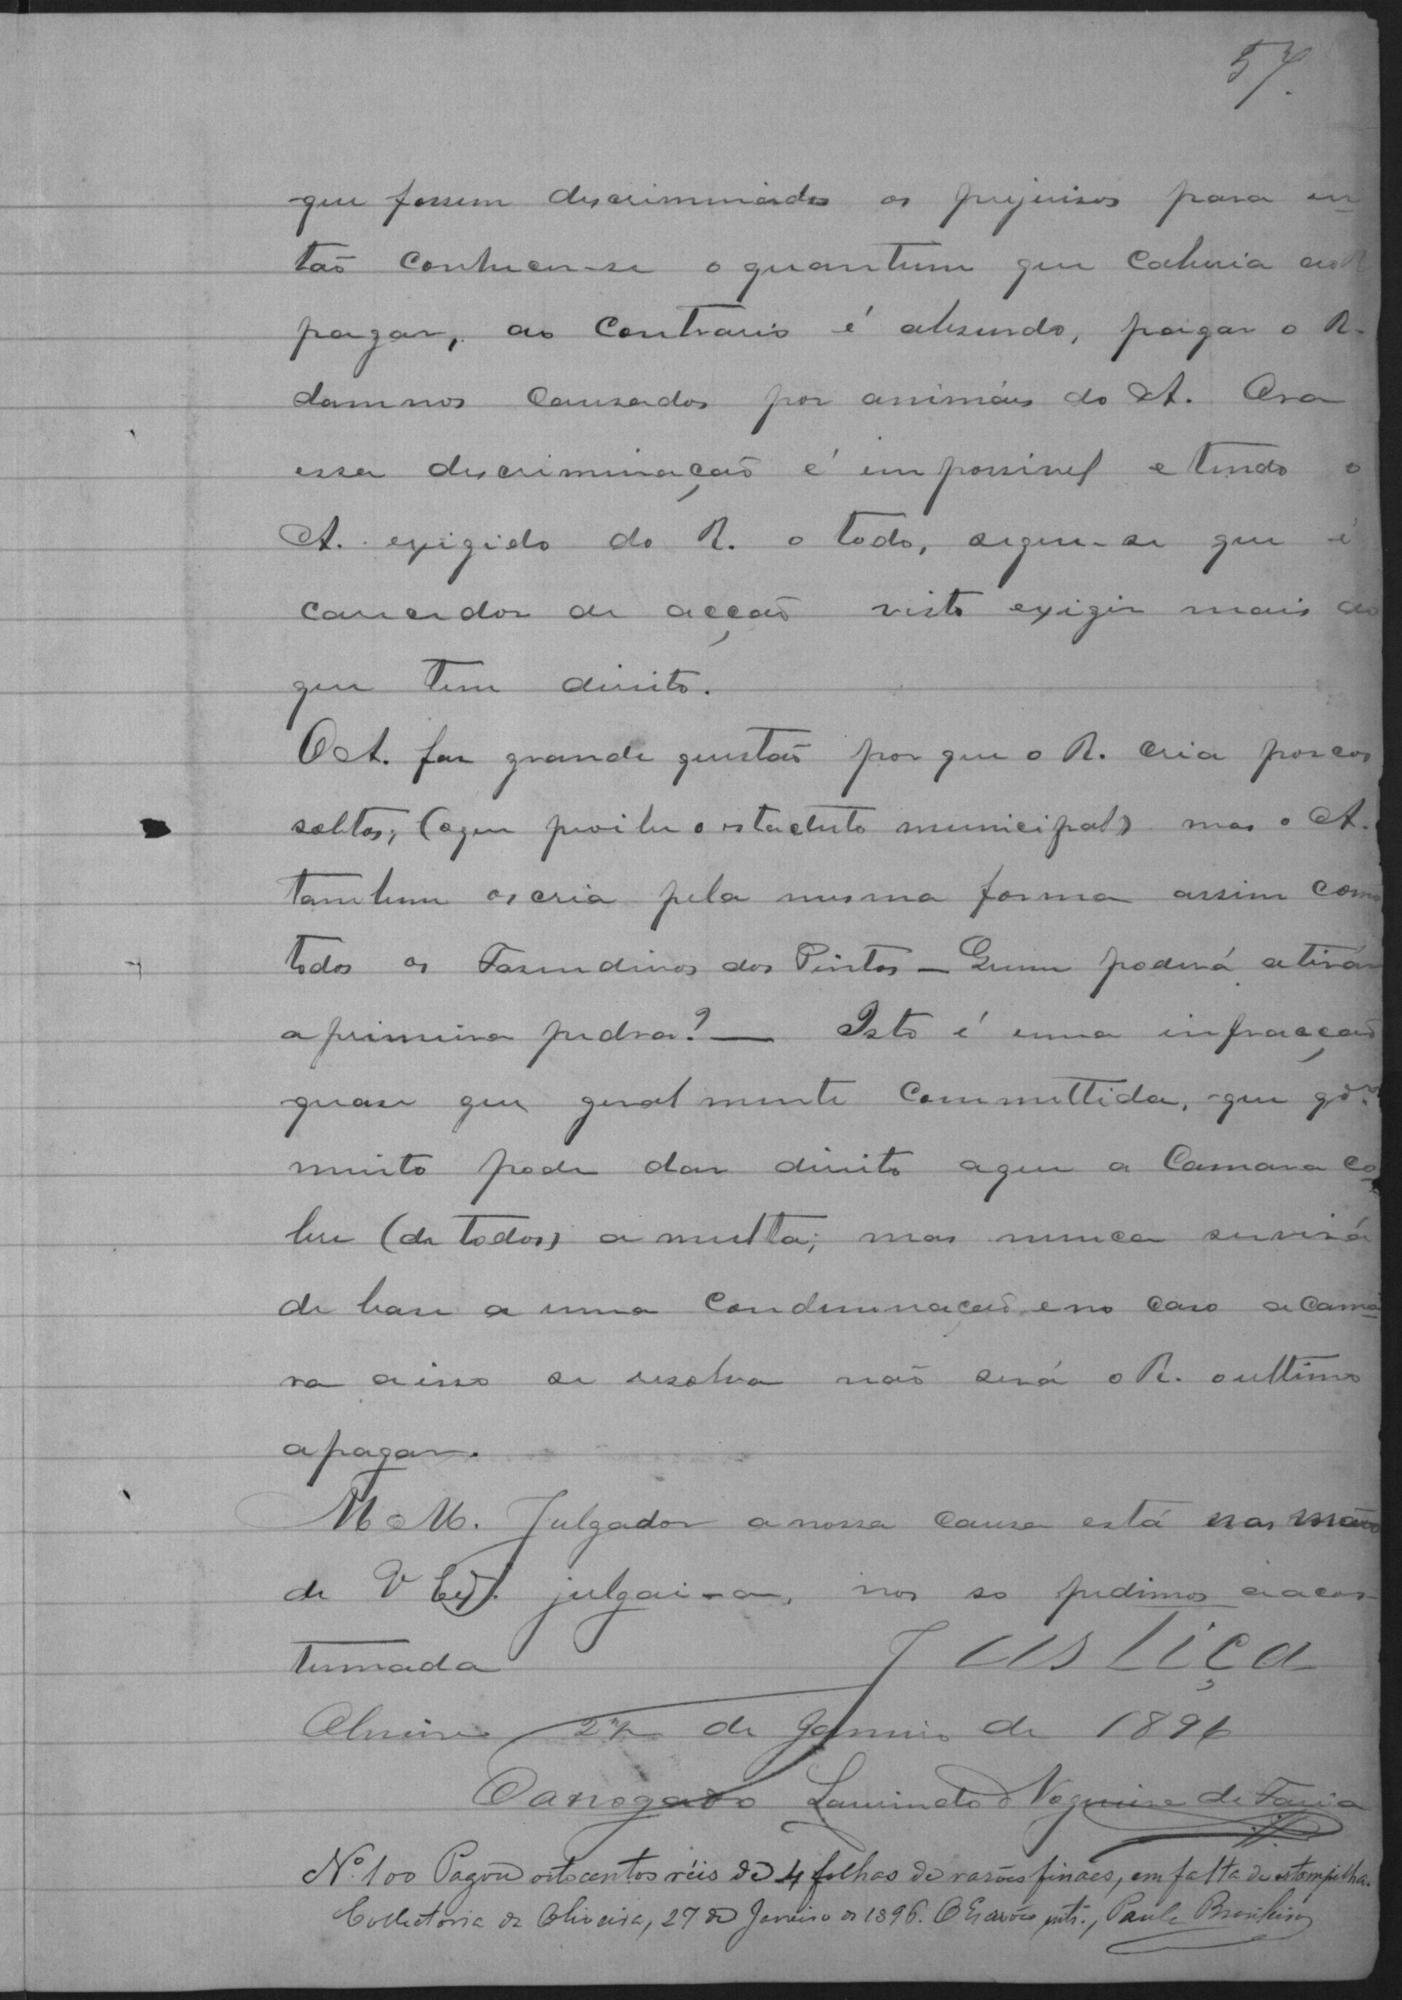 57.
que fossem discriminados os prejuisos para en
tão conhecer-se o quantum que caberia ao R
pagar, ao contrario é absurdo, pagar o R.
damnos causados por animáes do A. Ora
essa discriminação é impossivel e tendo o
A. exigido do R. o todo, segue-se que é
carecedor de acção visto exigir mais do
que tem direito.
O A. faz grande questão por que o R. cria porcos
soltos, (o que proibe o estactuto municipal) mas o A.
tambem os cria pela mesma forma assim como
todos os Fasendeiros dos Pintos — Quem poderá atirar
a primeira pedra? — Isto é uma infracção
quase que geralmente committida, que qdo.
muito pode dar direito a que a Camara co
bre (de todos) a multa; mas nunca servirá
de base a uma condemnação e no caso a Cama
ra a isso se resolva não será o R. o ultimo
a pagar.
M. M. Julgador a nossa causa está nas mãos
de V Exª. julgai-a, nos so pedimos a acos
tumada Justiça
Oliveira 27 de Janeiro de 1896
O advogado Laurindo Nogueira de Faria
Nº 100 Pagou oitocentos réis de 4 folhas de rasões finaes, em falta de estampilha.
Collectoria de Oliveira, 27 de Janeiro de 1896. O Escrivão , Paula Brasileiro